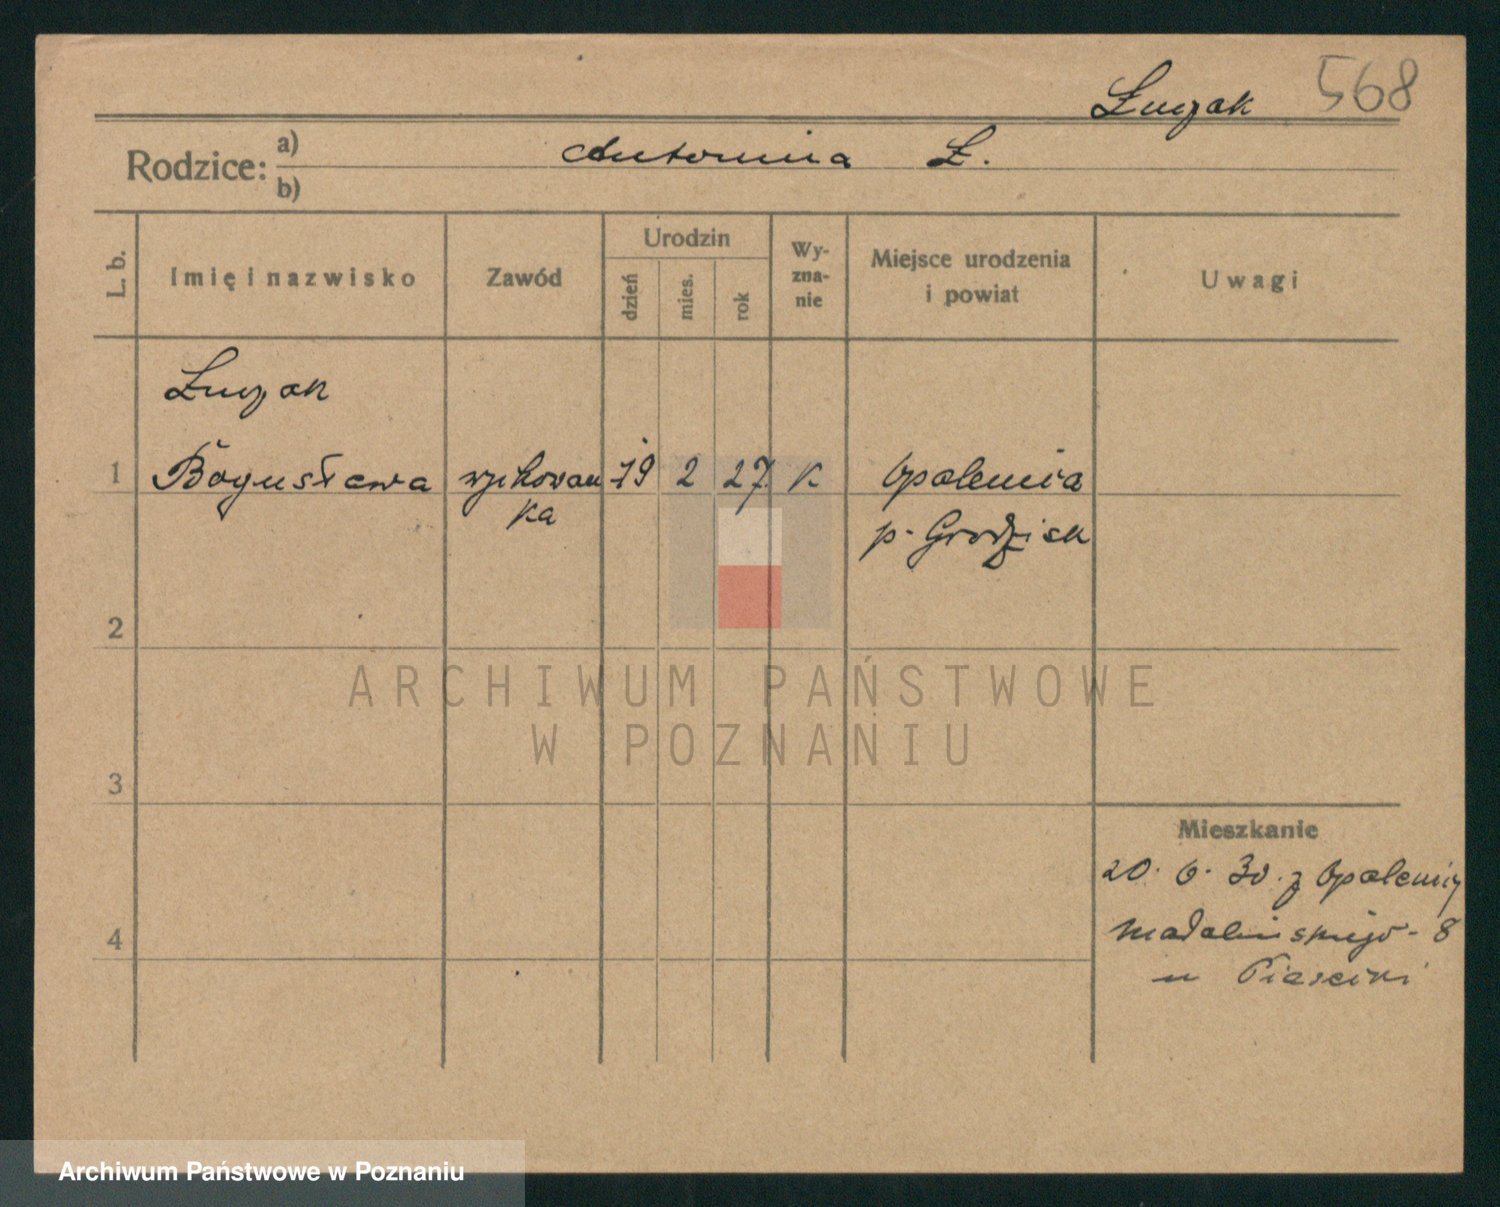 Łuczak 568
Rodzice: a) Antonina Ł.
b)
L. b. Imię i nazwisko Zawód Urodzin dzień mies. rok Wy-zna-nie Miejsce urodzenia i powiat Uwagi
Łuczak
1 Bogusława wychowan 19 2 27 K Opalenica
ka p. Grodzisk
2
ARCHIWUM PAŃSTWOWE
W POZNANIU
3
Mieszkanie
20. 6. 30. z Opalenicy
4 Madalińskiego - 8
u
Archiwum Państwowe w Poznaniu